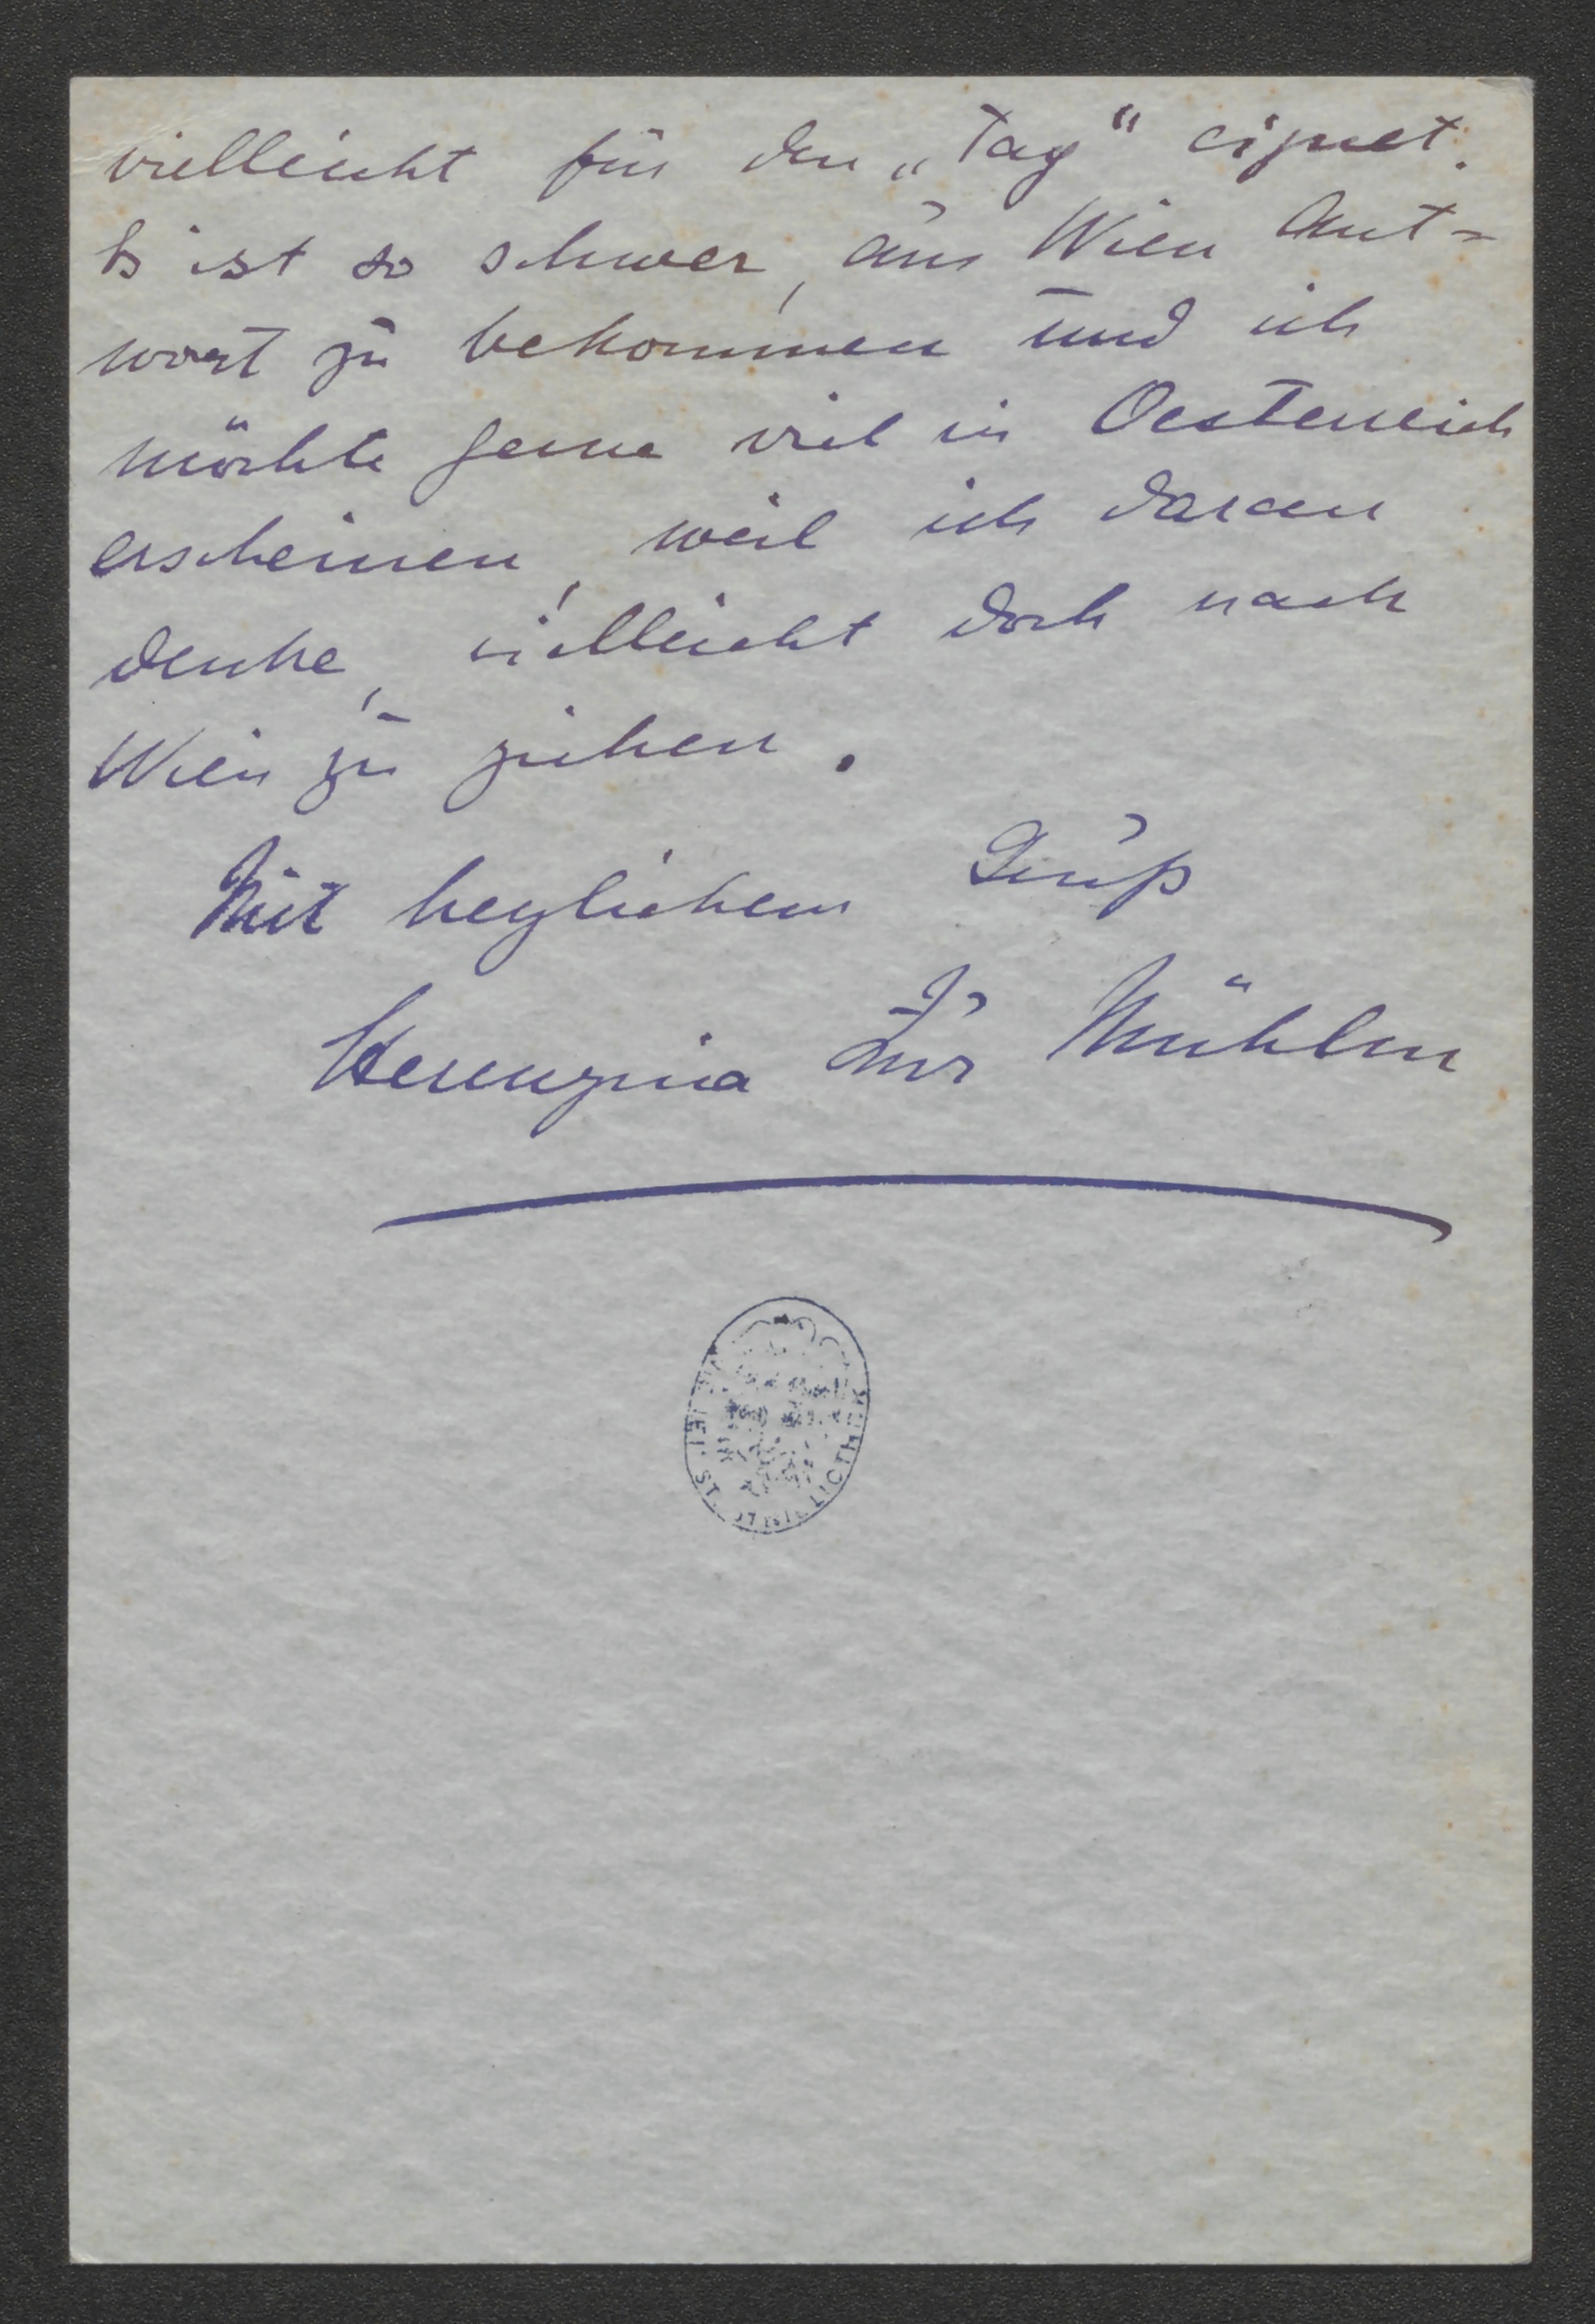 vielleicht für den „Tag“ eignet.
Es ist so schwer, aus Wien Ant=
wort zu bekommen und ich
möchte gerne viel in Oesterreich
erscheinen, weil ich daran
denke, vielleicht doch nach
Wien zu ziehen.
Mit herzlichem Gruß
Hermynia Zur Mühlen